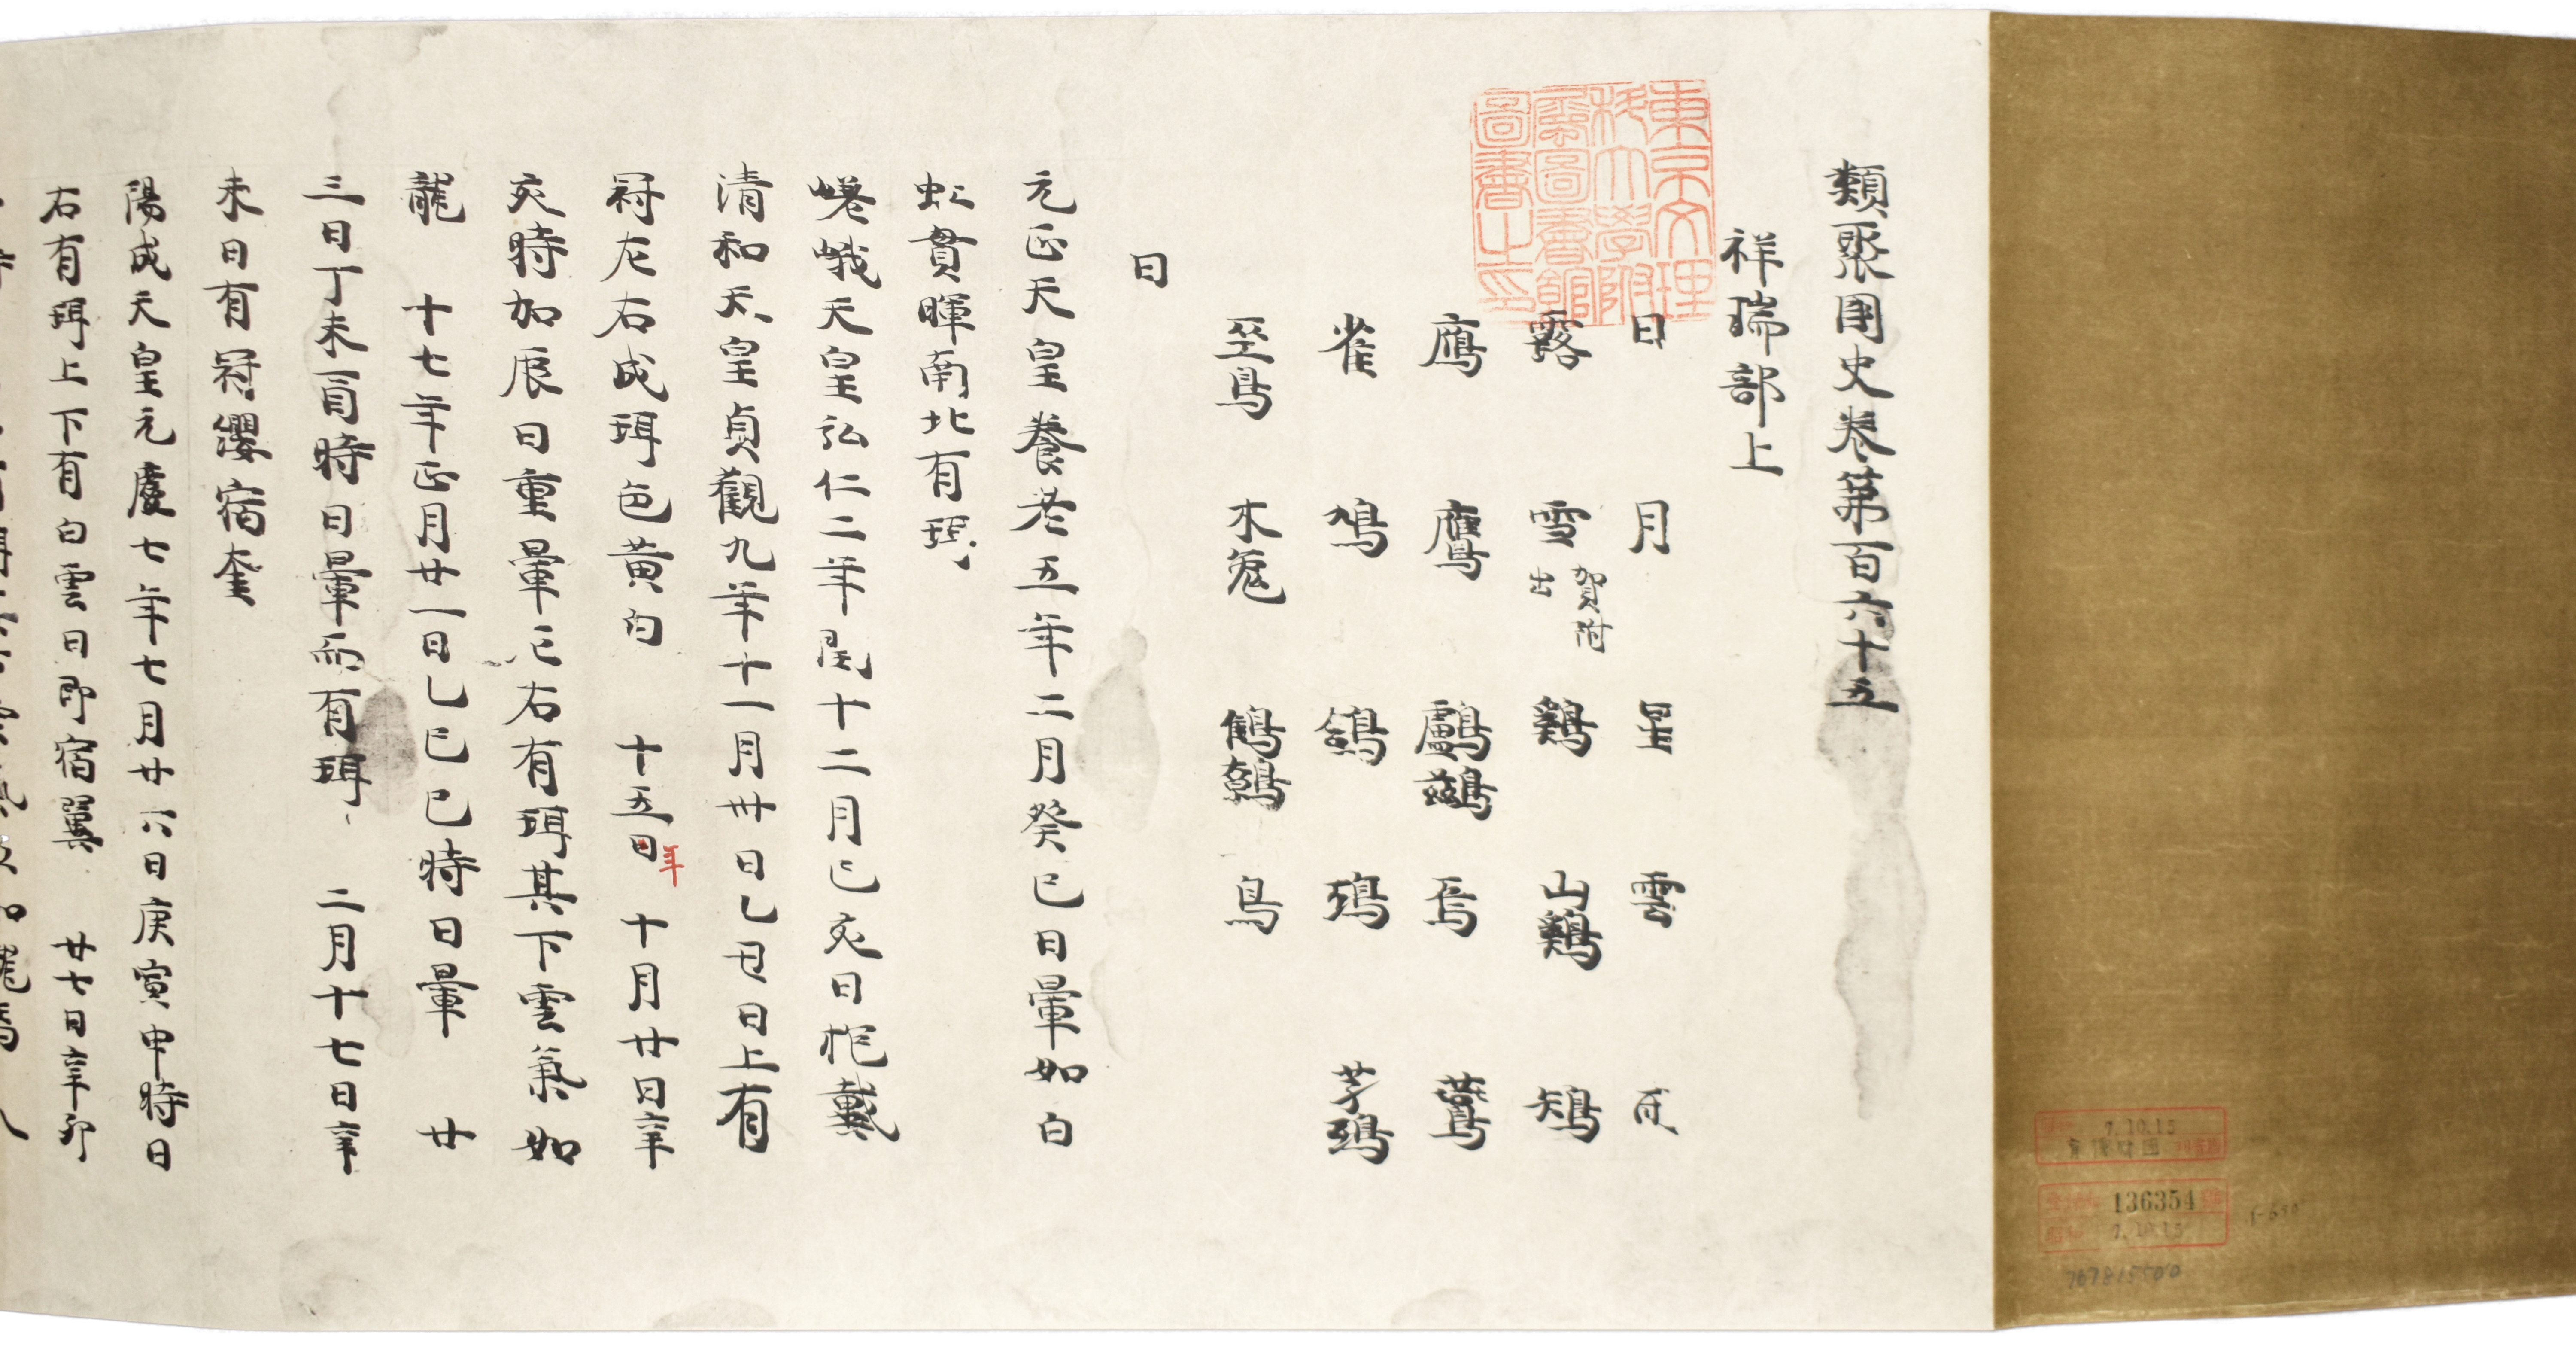 類聚国史卷第百六十五
祥瑞部上
日 月 星 雲
露 雪 賀附出 鷄 山鷄 鵄
鷹 鷹 鸕鷀 烏 鷰
雀 鵠 鴿 鵶 芋鷄
至鳥 木菟 鶺鴒 鳥
日
元正天皇養老五年二月癸巳日暈如白
虹貫暉南北有珥
嵯峨天皇弘仁二年閏十二月己亥日抱戴
清和天皇貞観九年十一月廿日乙丑日上有
冠左右成珥色黄白 十五日年 十月廿日辛
亥時加辰日重暈左右有珥其下雲氣如
龍 十七年正月廿一日乙巳巳時日暈 廿
三日丁未一剋時日暈有珥 二月十七日辛
未日有冠纓宿奎
陽成天皇元慶七年七月廿六日庚寅申時日
右有珥上下有白雲日即宿翼 廿七日辛卯
東京文理
科大学附
属図書館
図書之印
7.10.15
136354
7.10.15